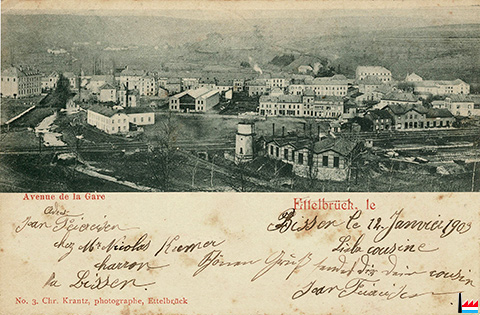 Avenue de la Gare
Ettelbrück, le
Bissen le 12 Janvier 1903
chez Mr Nicolas
charron
Bissen
cousine
Schönen Gruß sendet dir dein cousin
Jean
No. 3. Chr. Krantz, photographe, Ettelbrück